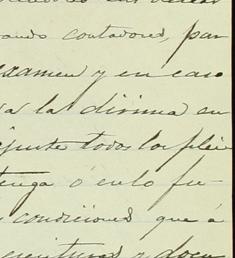 ando contadores, par
examen y en caso
a la divina en
ajuste todos los plei
tenga ó en lo fu-
condiciones que á
escrituras y docu